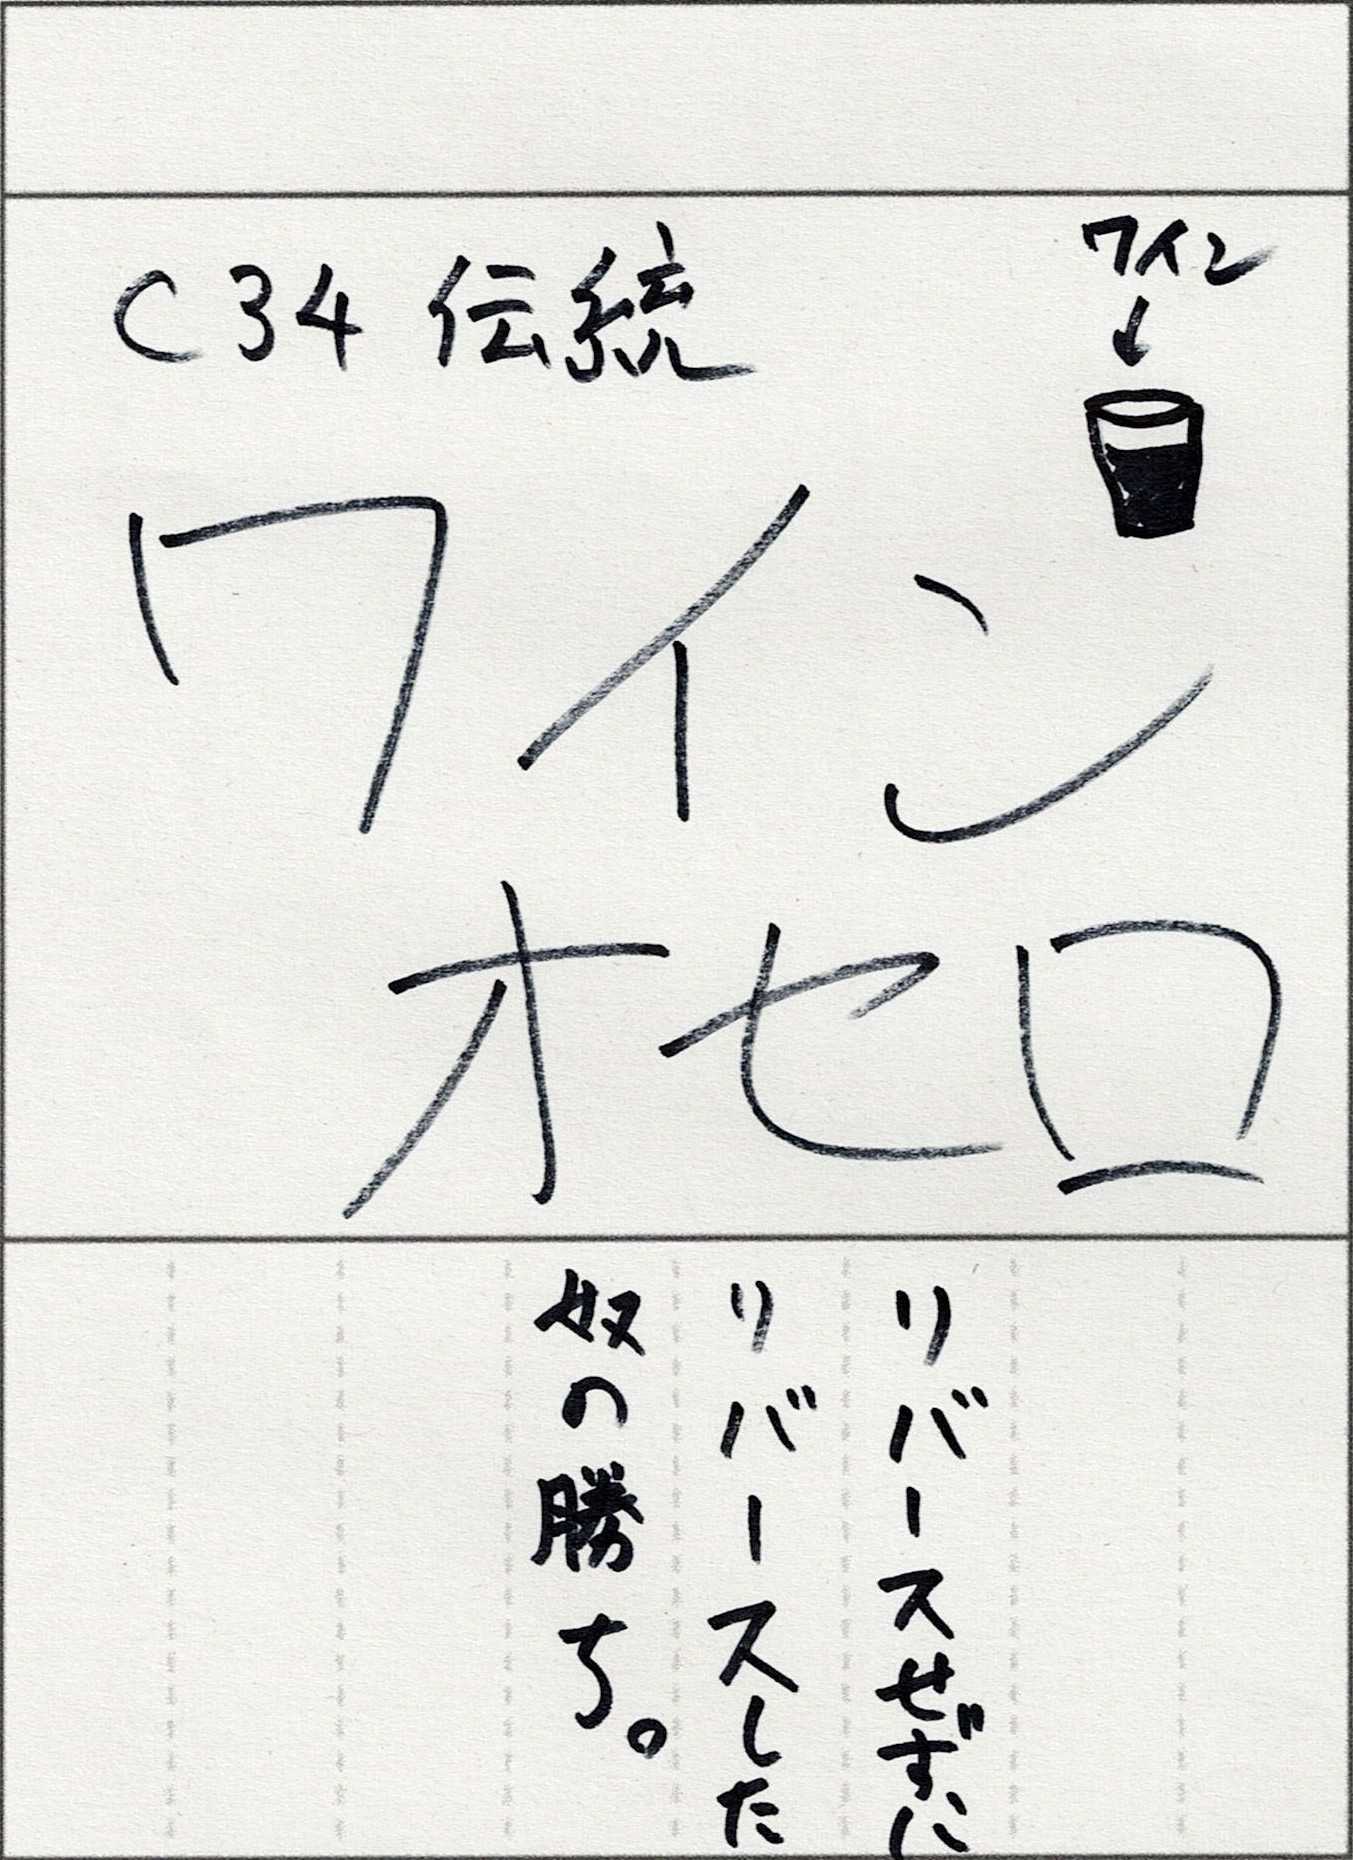 C34 伝統
ワイン
↓
ワイン
オセロ
リバースせずに
リバースした
奴の勝ち。